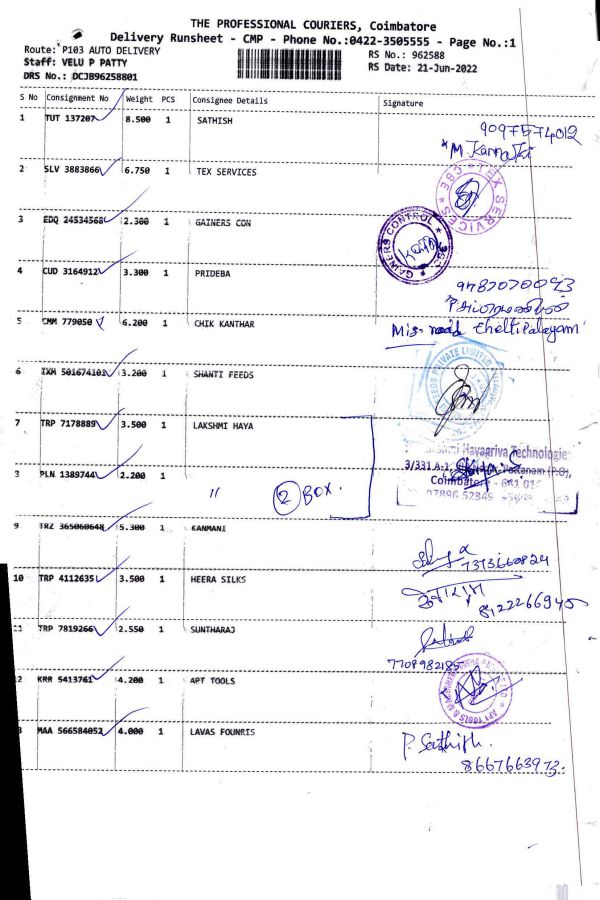 THE PROFESSIONAL COURIERS, Coimbatore
Delivery Runsheet - CMP - Phone No.:0422-3505555 - Page No.:1
Route: P103 AUTO DELIVERY
RS No.: 962588
Staff: VELU P PATTY
RS Date: 21-Jun-2022
DRS No.: DCJB96258801
S No Consignment No Weight PCS Consignee Details Signature
1 TUT 137207 8.500 1 SATHISH
9097574012
2 SLV 3883866 6.750 1 TEX SERVICES
TEX SERVICES * CBE
3 EDQ 24534568 2.300 1 GAINERS CON
GAINERS CONTROL
4 CUD 3164912 3.300 1 PRIDEBA
5 CMM 779050 6.200 1 CHIK KANTHAR
6 IXM 501674101 3.200 1 SHANTI FEEDS
PRIVATE LIMITED
7 TRP 7178889 3.500 1 LAKSHMI HAYA
Hayagriva Technologie
3/331 A-1,
PLN 1389744 2.200 1
" 2 BOX.
Coimbatore - 641
97896 52349
9 TRZ 365060648 5.300 1 KANMANI
7373660824
10 TRP 4112635 3.500 1 HEERA SILKS
8122266945
TRP 7819266 2.550 1 SUNTHARAJ
7708982185
KRR 5413761 4.200 1 APT TOOLS
APT TOOLS &
MAA 566584052 4.000 1 LAVAS FOUNRIS
P. Sathish.
8667663973.